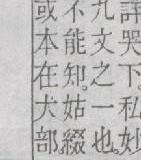 詳哭下。私妙
九文之一也。
不能知。姑綴
或本在犬部。